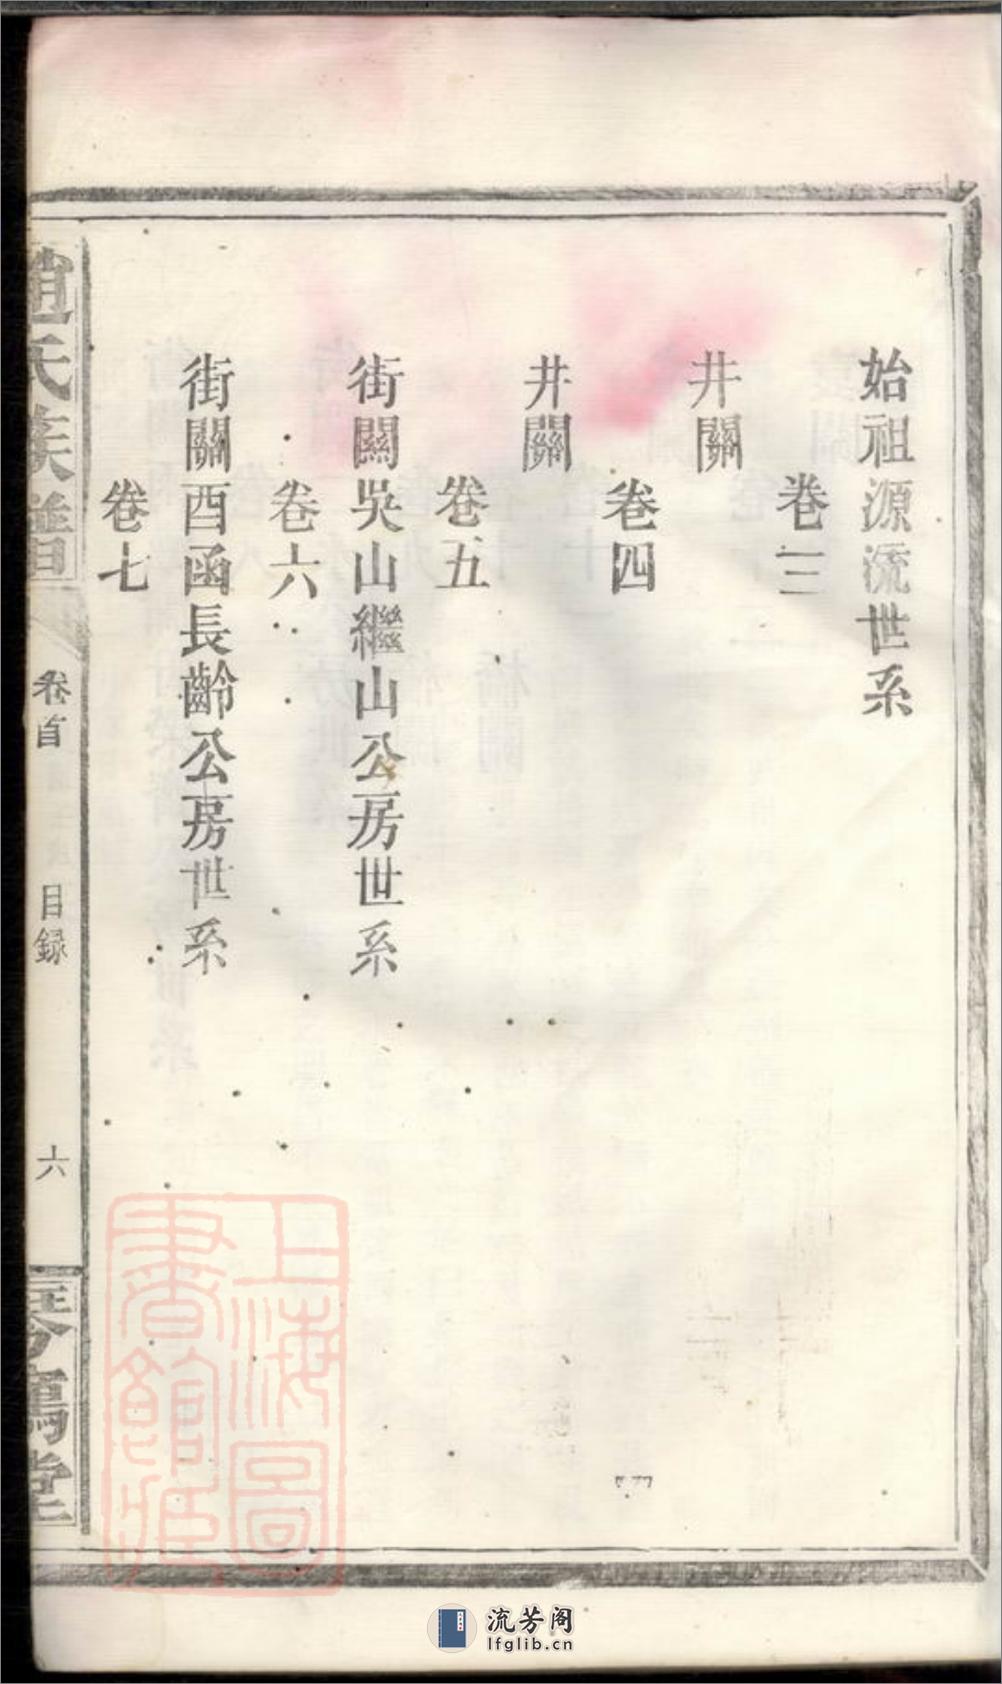 始祖源流世系
卷三
井關
卷四
井關
卷五
街關吳山繼山公房世系
卷六
街關酉函長齡公房世系
卷七
趙氏族譜
卷首
目録
六
琴鶴堂
上海圖
書館藏
流芳阁
lfglib.cn